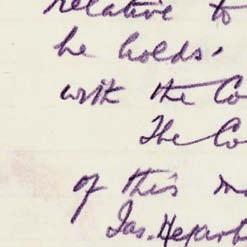 relative to
he holds.
with the Co
The Co
of this m
Jas. Hepart